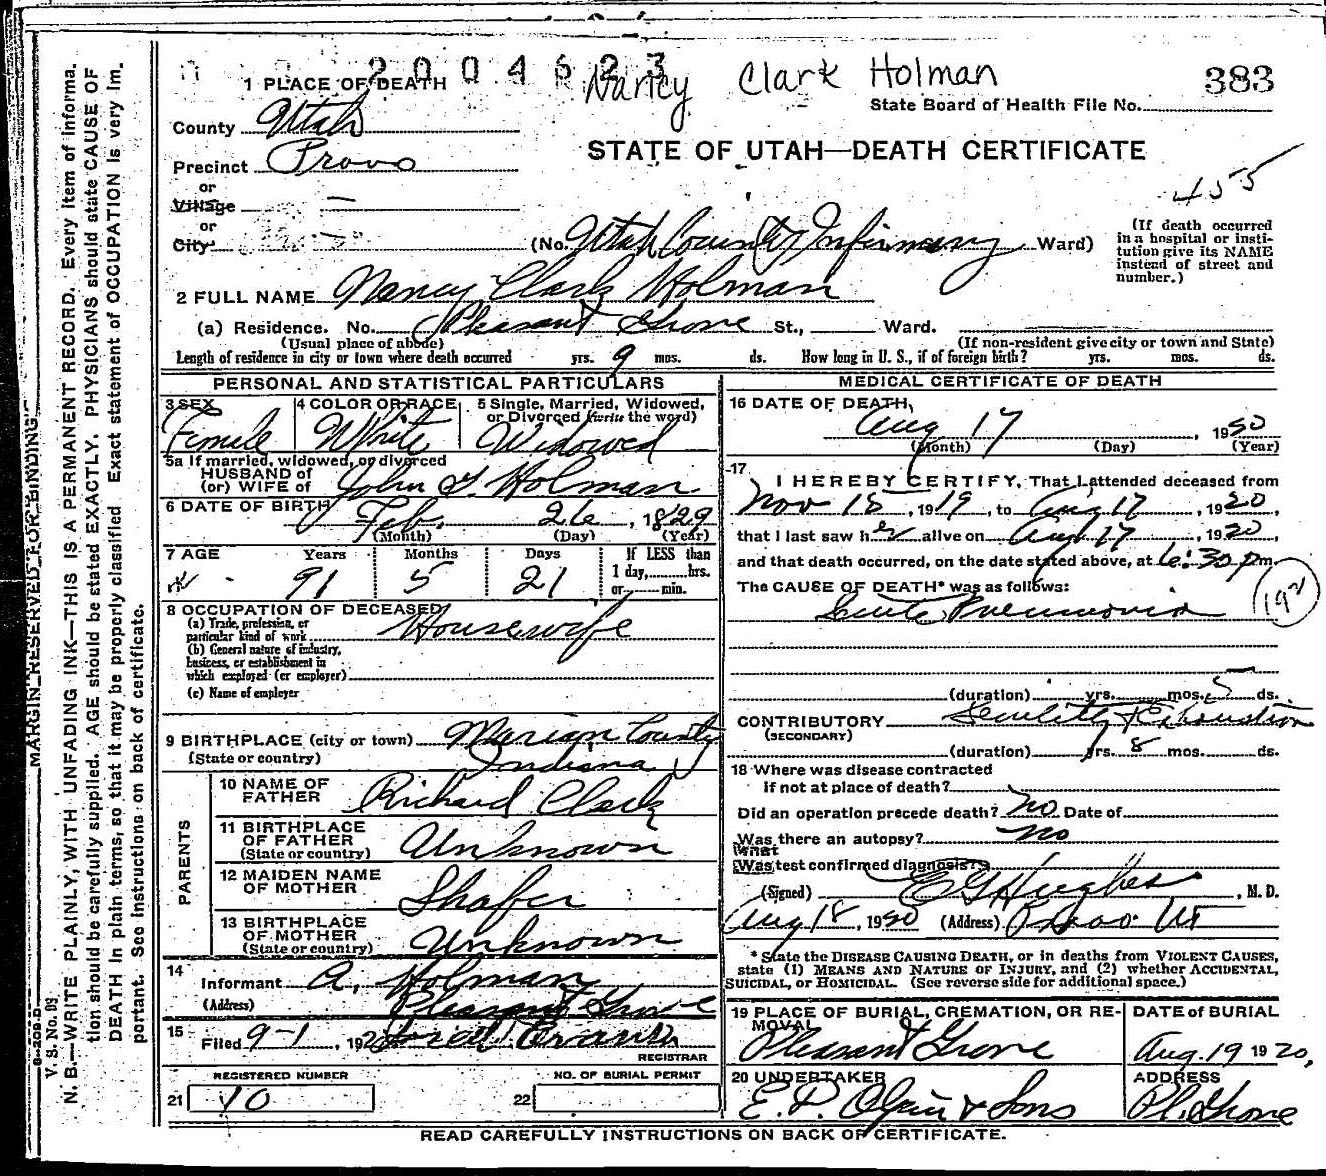 2004623
Nancy Clark Holman
383
1 PLACE OF DEATH
State Board of Health File No.
County Utah
STATE OF UTAH—DEATH CERTIFICATE
Precinct Provo
455
or
Village —
or
City —
(No. Utah County Infirmary Ward)
(If death occurred
in a hospital or insti-
tution give its NAME
instead of street and
number.)
2 FULL NAME Nancy Clark Holman
(a) Residence. No. Pleasant Grove St., Ward.
(Usual place of abode)
(If non-resident give city or town and State)
Length of residence in city or town where death occurred yrs. 9 mos. ds. How long in U. S., if of foreign birth? yrs. mos. ds.
PERSONAL AND STATISTICAL PARTICULARS
3 SEX
Female
4 COLOR OR RACE
White
5 Single, Married, Widowed,
or Divorced (write the word)
Widowed
5a If married, widowed, or divorced
HUSBAND of
(or) WIFE of John G. Holman
6 DATE OF BIRTH Feb. 26, 1829
(Month) (Day) (Year)
7 AGE Years Months Days If LESS than
1 day, hrs.
or min.
91 5 21
8 OCCUPATION OF DECEASED
(a) Trade, profession, or
particular kind of work Housewife
(b) General nature of industry,
business, or establishment in
which employed (or employer)
(c) Name of employer
9 BIRTHPLACE (city or town) Marian County
(State or country) Indiana
PARENTS
10 NAME OF
FATHER Richard Clark
11 BIRTHPLACE
OF FATHER
(State or country) Unknown
12 MAIDEN NAME
OF MOTHER Shafer
13 BIRTHPLACE
OF MOTHER
(State or country) Unknown
14
Informant A. Holman
(Address) Pleasant Grove
15
Filed 9-1, 192
REGISTRAR
REGISTERED NUMBER
21 10
NO. OF BURIAL PERMIT
22
MEDICAL CERTIFICATE OF DEATH
16 DATE OF DEATH
Aug 17, 1920
(Month) (Day) (Year)
17
I HEREBY CERTIFY, That I attended deceased from
Nov 18, 1919, to Aug 17, 1920,
that I last saw her alive on Aug 17, 1920,
and that death occurred, on the date stated above, at 6:30 p.m.
The CAUSE OF DEATH* was as follows:
Senile Pneumonia
(duration) yrs. mos. 5 ds.
CONTRIBUTORY Senility & Exhaustion
(SECONDARY)
(duration) yrs. 8 mos. ds.
18 Where was disease contracted
if not at place of death?
Did an operation precede death? no Date of
Was there an autopsy? no
What
Was test confirmed diagnosis?
(Signed) E G Hughes, M. D.
Aug 18, 1920 (Address) Provo Ut
* State the DISEASE CAUSING DEATH, or in deaths from VIOLENT CAUSES,
state (1) MEANS AND NATURE OF INJURY, and (2) whether ACCIDENTAL,
SUICIDAL, or HOMICIDAL. (See reverse side for additional space.)
19 PLACE OF BURIAL, CREMATION, OR RE-
MOVAL
Pleasant Grove
DATE of BURIAL
Aug. 19 1920,
20 UNDERTAKER
E. D. Olpin & Sons
ADDRESS
Pl. Grove
READ CAREFULLY INSTRUCTIONS ON BACK OF CERTIFICATE.
MARGIN RESERVED FOR BINDING
V. S. No. B5
N. B.—WRITE PLAINLY, WITH UNFADING INK—THIS IS A PERMANENT RECORD. Every item of informa-
tion should be carefully supplied. AGE should be stated EXACTLY. PHYSICIANS should state CAUSE OF
DEATH in plain terms, so that it may be properly classified. Exact statement of OCCUPATION is very im-
portant. See instructions on back of certificate.